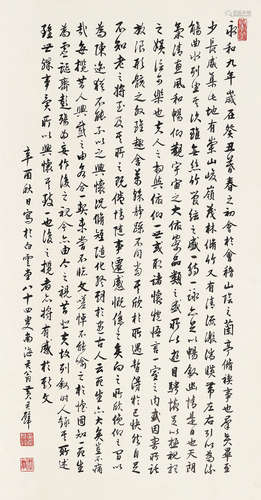 永和九年歲在癸丑暮春之初會於會稽山陰之蘭亭修禊事也群賢畢至
少長咸集此地有崇山峻嶺茂林修竹又有清流激湍映帶左右引以為流
觴曲水列坐其次雖無絲竹管絃之盛一觴一詠亦足以暢敘幽情是日也天朗
氣清惠風和暢仰觀宇宙之大俯察品類之盛所以遊目騁懷足以極視聽
之娛信可樂也夫人之相與俯仰一世或取諸懷抱悟言一室之內或因寄所託
放浪形骸之外雖趣舍萬殊靜躁不同當其欣於所遇暫得於己快然自足
不知老之將至及其所之既倦情隨事遷感慨係之矣向之所欣俛仰之間以
為陳迹猶不能不以之興懷況修短隨化終期於盡古人云死生亦大矣豈不痛
哉每攬昔人興感之由若合一契未嘗不臨文嗟悼不能喻之於懷固知一死生
為虛誕齊彭殤為妄作後之視今亦由今之視昔悲夫故列敘時人錄其所述
雖世殊事異所以興懷其致一也後之攬者亦將有感於斯文
辛酉秋日寫於白雲堂八十四叟南海黃君璧